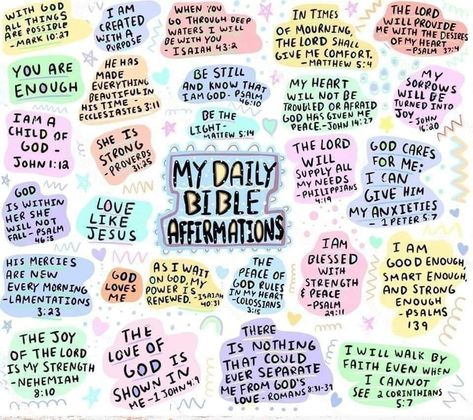 WITH GOD
ALL THINGS
ARE POSSIBLE
- MARK 10:27
I AM
CREATED
WITH A
PURPOSE
WHEN YOU
GO THROUGH DEEP
WATERS I WILL
BE WITH YOU
- ISAIAH 43:2
IN TIMES
OF MOURNING,
THE LORD SHALL
GIVE ME COMFORT.
- MATTHEW 5:4
THE LORD
WILL PROVIDE
ME WITH THE DESIRES
OF MY HEART
- PSALM 37:4
YOU ARE
ENOUGH
HE HAS
MADE
EVERYTHING
BEAUTIFUL IN
HIS TIME -
ECCLESIASTES 3:11
BE STILL
AND KNOW THAT
I AM GOD - PSALM
46:10
MY HEART
WILL NOT BE
TROUBLED OR AFRAID
GOD HAS GIVEN ME
PEACE - JOHN 14:27
MY
SORROWS
WILL BE
TURNED INTO
JOY - JOHN
16:20
I AM A
CHILD OF
GOD -
JOHN 1:12
SHE IS
STRONG
- PROVERBS
31:25
BE THE
LIGHT -
MATTEW 5:14
MY DAILY
BIBLE
AFFIRMATIONS
THE LORD
WILL
SUPPLY ALL
MY NEEDS
- PHILIPPIANS
4:19
GOD CARES
FOR ME;
I CAN
GIVE HIM
MY ANXIETIES
- 1 PETER 5:7
GOD
IS WITHIN
HER SHE
WILL NOT
FALL - PSALM
46:5
LOVE
LIKE
JESUS
HIS MERCIES
ARE NEW
EVERY MORNING
- LAMENTATIONS
3:23
GOD
LOVES
ME
AS I WAIT
ON GOD, MY
POWER IS
RENEWED, - ISAIAH
40:31
THE
PEACE OF
GOD RULES
IN MY HEART
- COLOSSIANS
3:15
I AM
BLESSED
WITH
STRENGTH
& PEACE
- PSALM
29:11
I AM
GOOD ENOUGH,
SMART ENOUGH,
AND STRONG
ENOUGH
- PSALMS
139
THE JOY
OF THE LORD
IS MY STRENGTH
- NEHEMIAH
8:10
THE
LOVE OF
GOD IS
SHOWN IN
ME - 1 JOHN 4:9
THERE
IS NOTHING
THAT COULD
EVER SEPARATE
ME FROM GOD'S
LOVE - ROMANS 8:31-39
I WILL WALK BY
FAITH EVEN WHEN
I CANNOT
SEE 2 CORINTHIANS
5:7